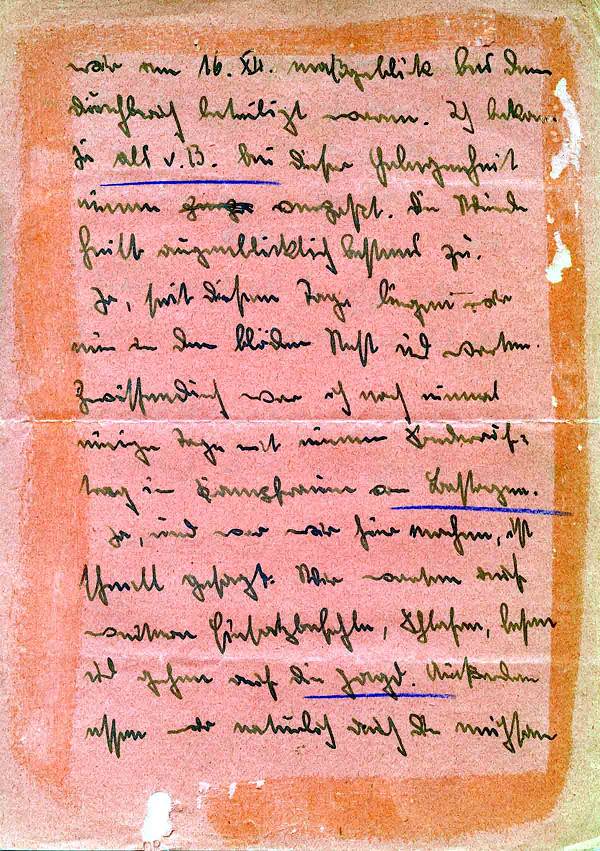 wir am 16. XII. maßgeblich bei dem
Durchbruch beteiligt waren. Ich bekam
ja als v.B. bei dieser Gelegenheit
einen angesetzt. Die Wunde
heilte augenblicklich bestens zu.
Ja, seit diesem Tage liegen wir
nun in dem blöden Nest und warten.
Zwischendurch war ich noch einmal
einige Tage mit einem Sonderauf-
trag im Kampfraum von Bastogne.
Ja, und was wir hier machen, ist
schnell gesagt: Wir warten auf
weitere Einsatzbefehle, schlafen, lesen
und gehen auf die Jagd. Außerdem
essen wir natürlich auch die